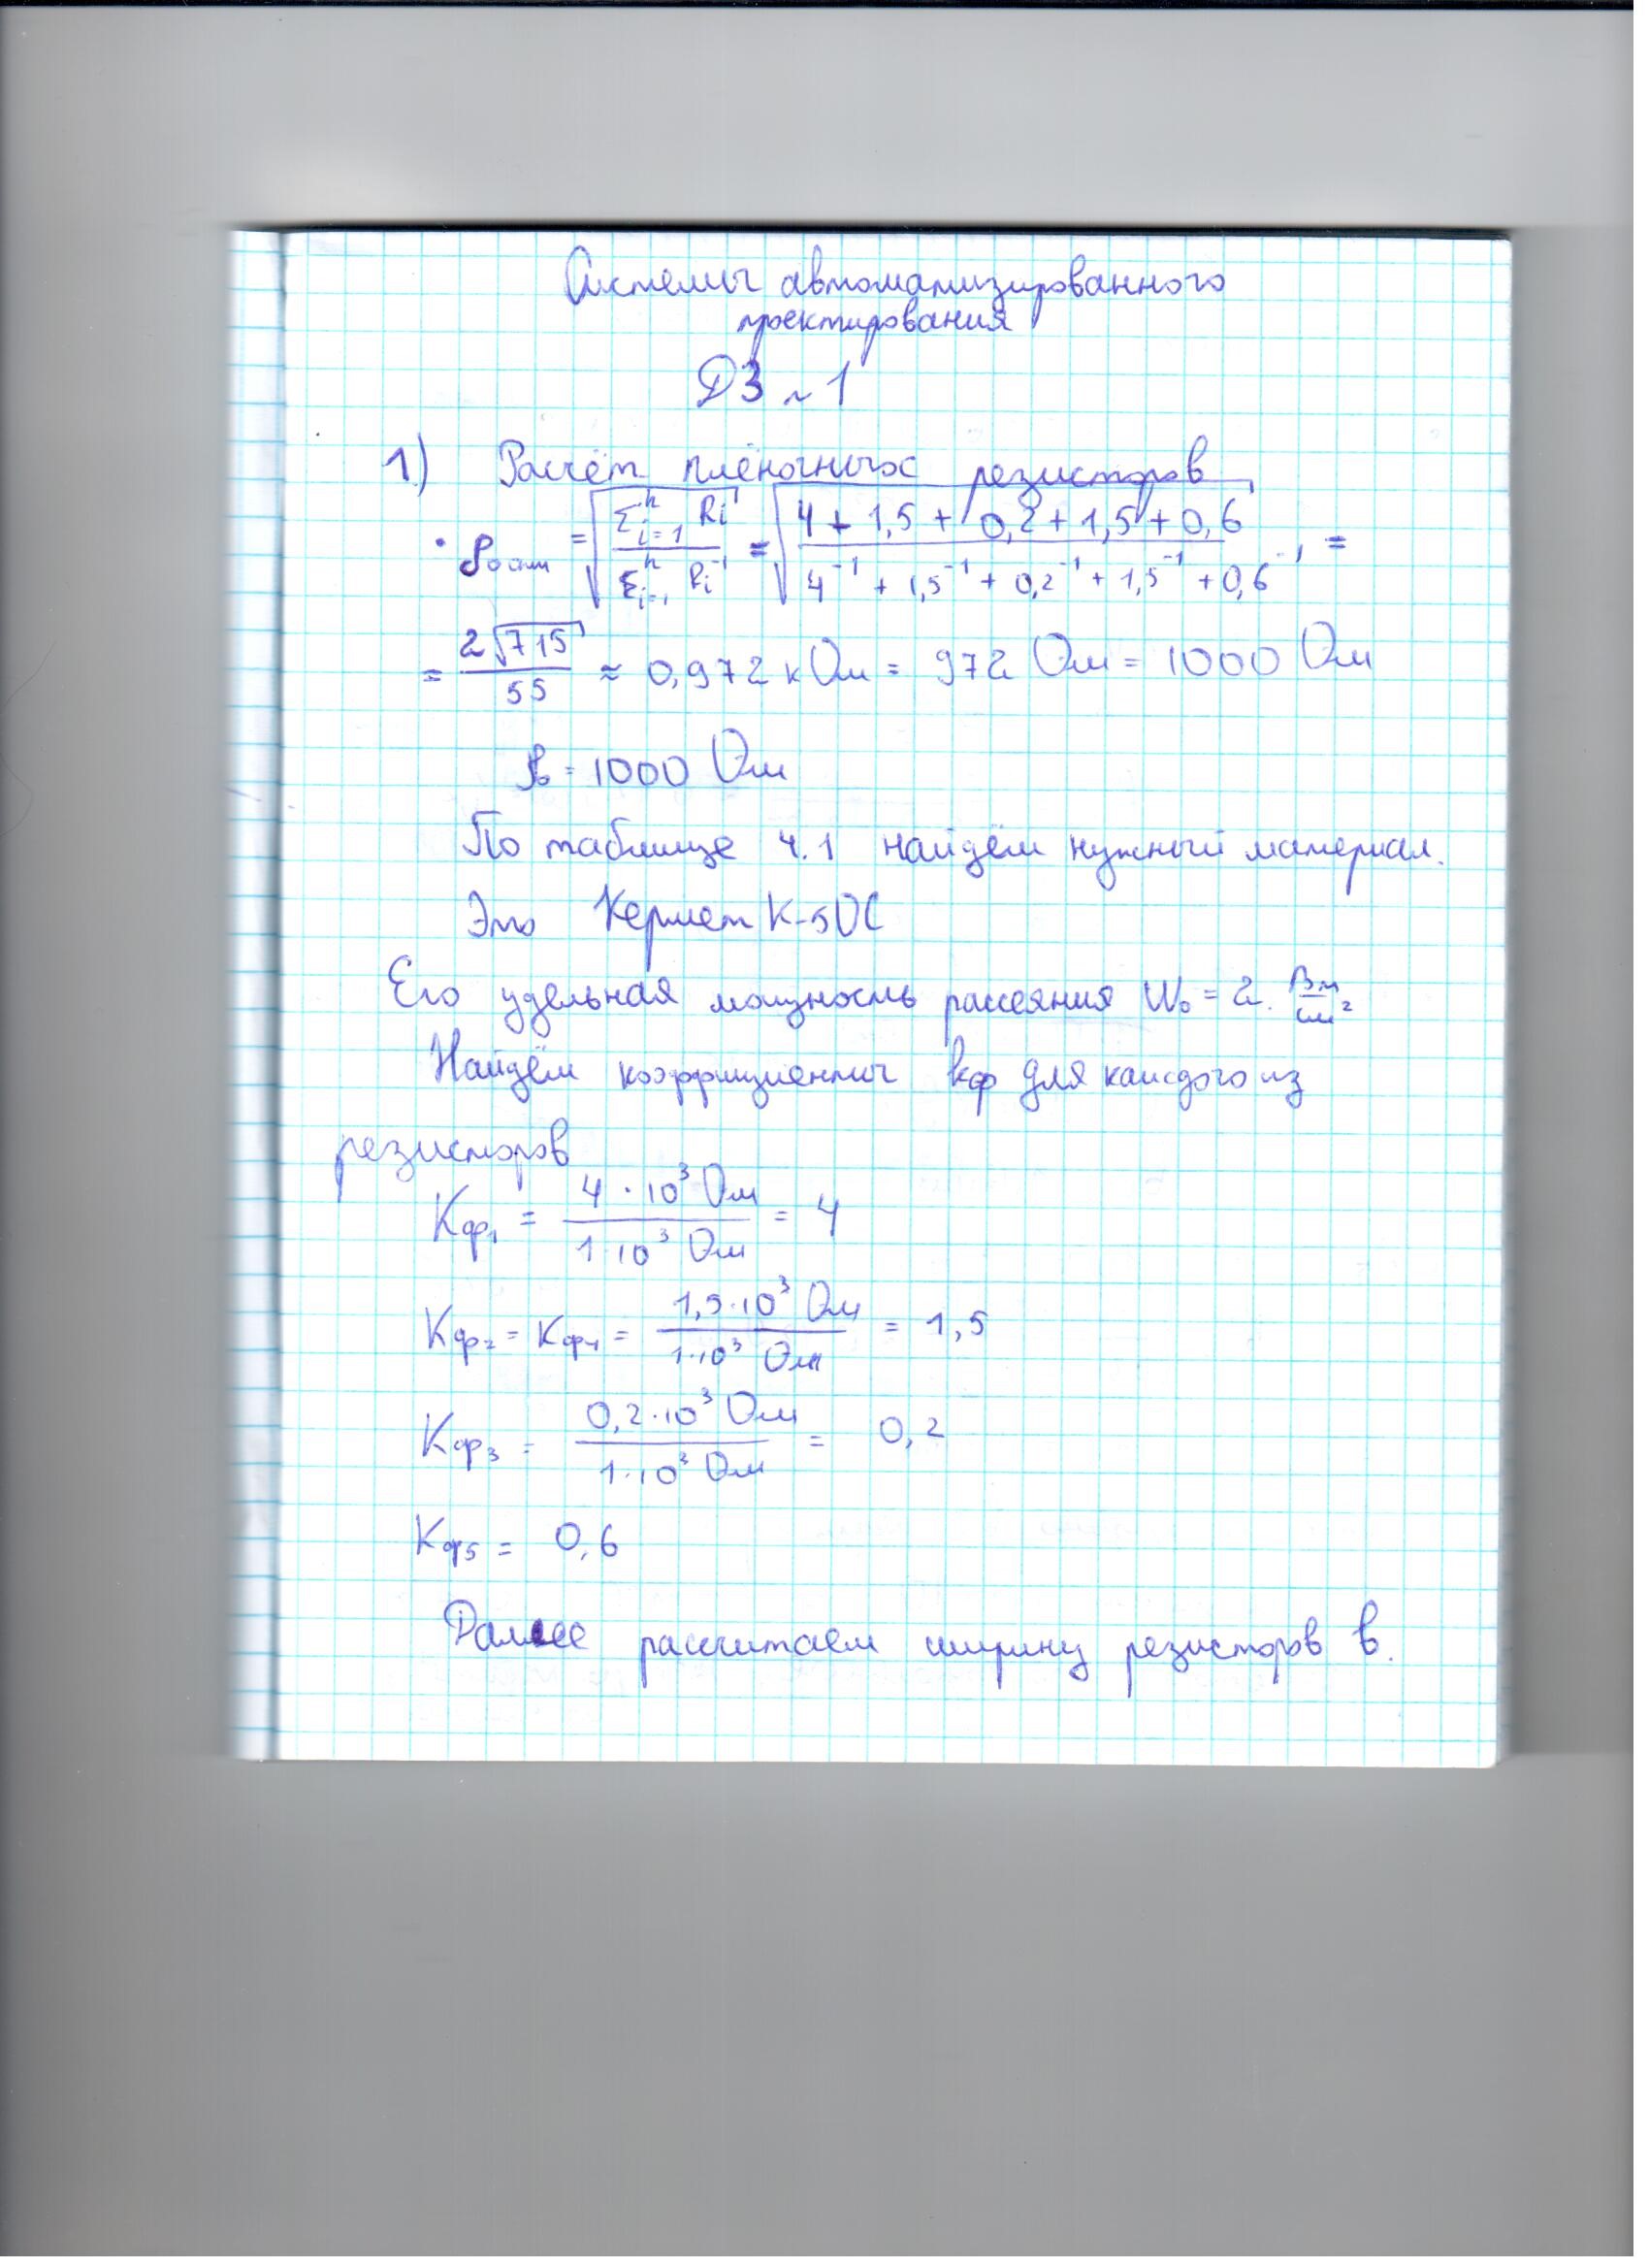 Системы автоматизированного
проектирования
ДЗ ~ 1
1) Расчёт плёночных резисторов
· ρ₀опт = √(Σⁿᵢ₌₁ Rᵢ / Σⁿᵢ₌₁ Rᵢ⁻¹) = √((4 + 1,5 + 0,2 + 1,5 + 0,6) / (4⁻¹ + 1,5⁻¹ + 0,2⁻¹ + 1,5⁻¹ + 0,6⁻¹)) =
= 2√715 / 55 ≈ 0,972 кОм = 972 Ом = 1000 Ом
ρ₀ = 1000 Ом
По таблице 4.1 найдём нужный материал.
Это Кермет К-50С
Его удельная мощность рассеяния W₀ = 2 Вт/см²
Найдём коэффициенты kф для каждого из
резисторов
Kф₁ = 4 · 10³ Ом / 1·10³ Ом = 4
Kф₂ = Kф₄ = 1,5·10³ Ом / 1·10³ Ом = 1,5
Kф₃ = 0,2·10³ Ом / 1·10³ Ом = 0,2
Kф₅ = 0,6
Далее рассчитаем ширину резисторов b.